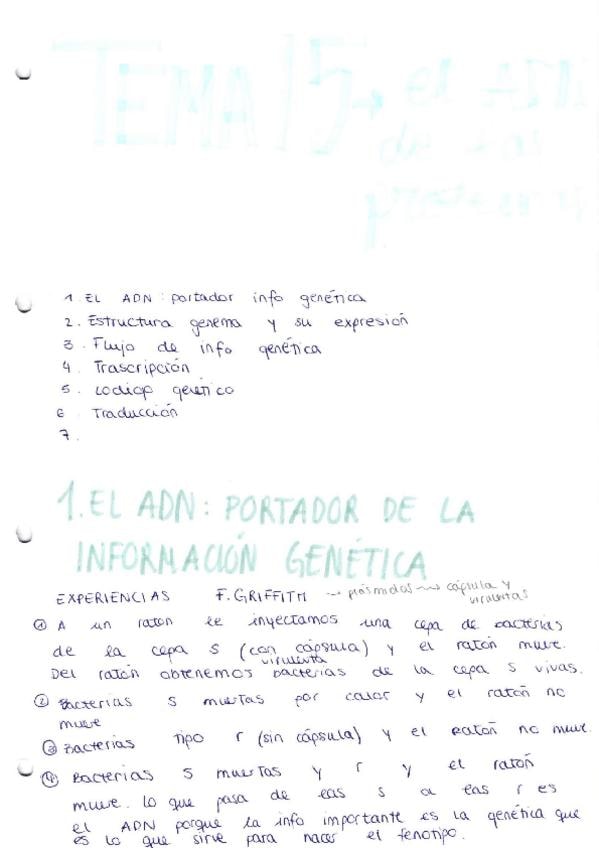 TEMA 15 → el ADN
de las
proteínas
1. EL ADN : portador info genética
2. Estructura genema y su expresión
3. Flujo de info genética
4. Trascripción
5. Codigo genético
6. Traducción
7.
1. EL ADN: PORTADOR DE LA
INFORMACIÓN GENÉTICA
EXPERIENCIAS F. GRIFFITH → plásmidos → cápsula y
virulentas
① A un ratón le inyectamos una cepa de bacterias
de la cepa S (con cápsula) y el ratón muere.
virulenta
Del ratón obtenemos bacterias de la cepa S vivas.
② Bacterias S muertas por calor y el ratón no
muere
③ Bacterias tipo r (sin cápsula) y el ratón no muere.
④ Bacterias S muertas y r y el ratón
muere. Lo que pasa de las S a las r es
el ADN porque la info importante es la genética que
es lo que sirve para hacer el fenotipo.